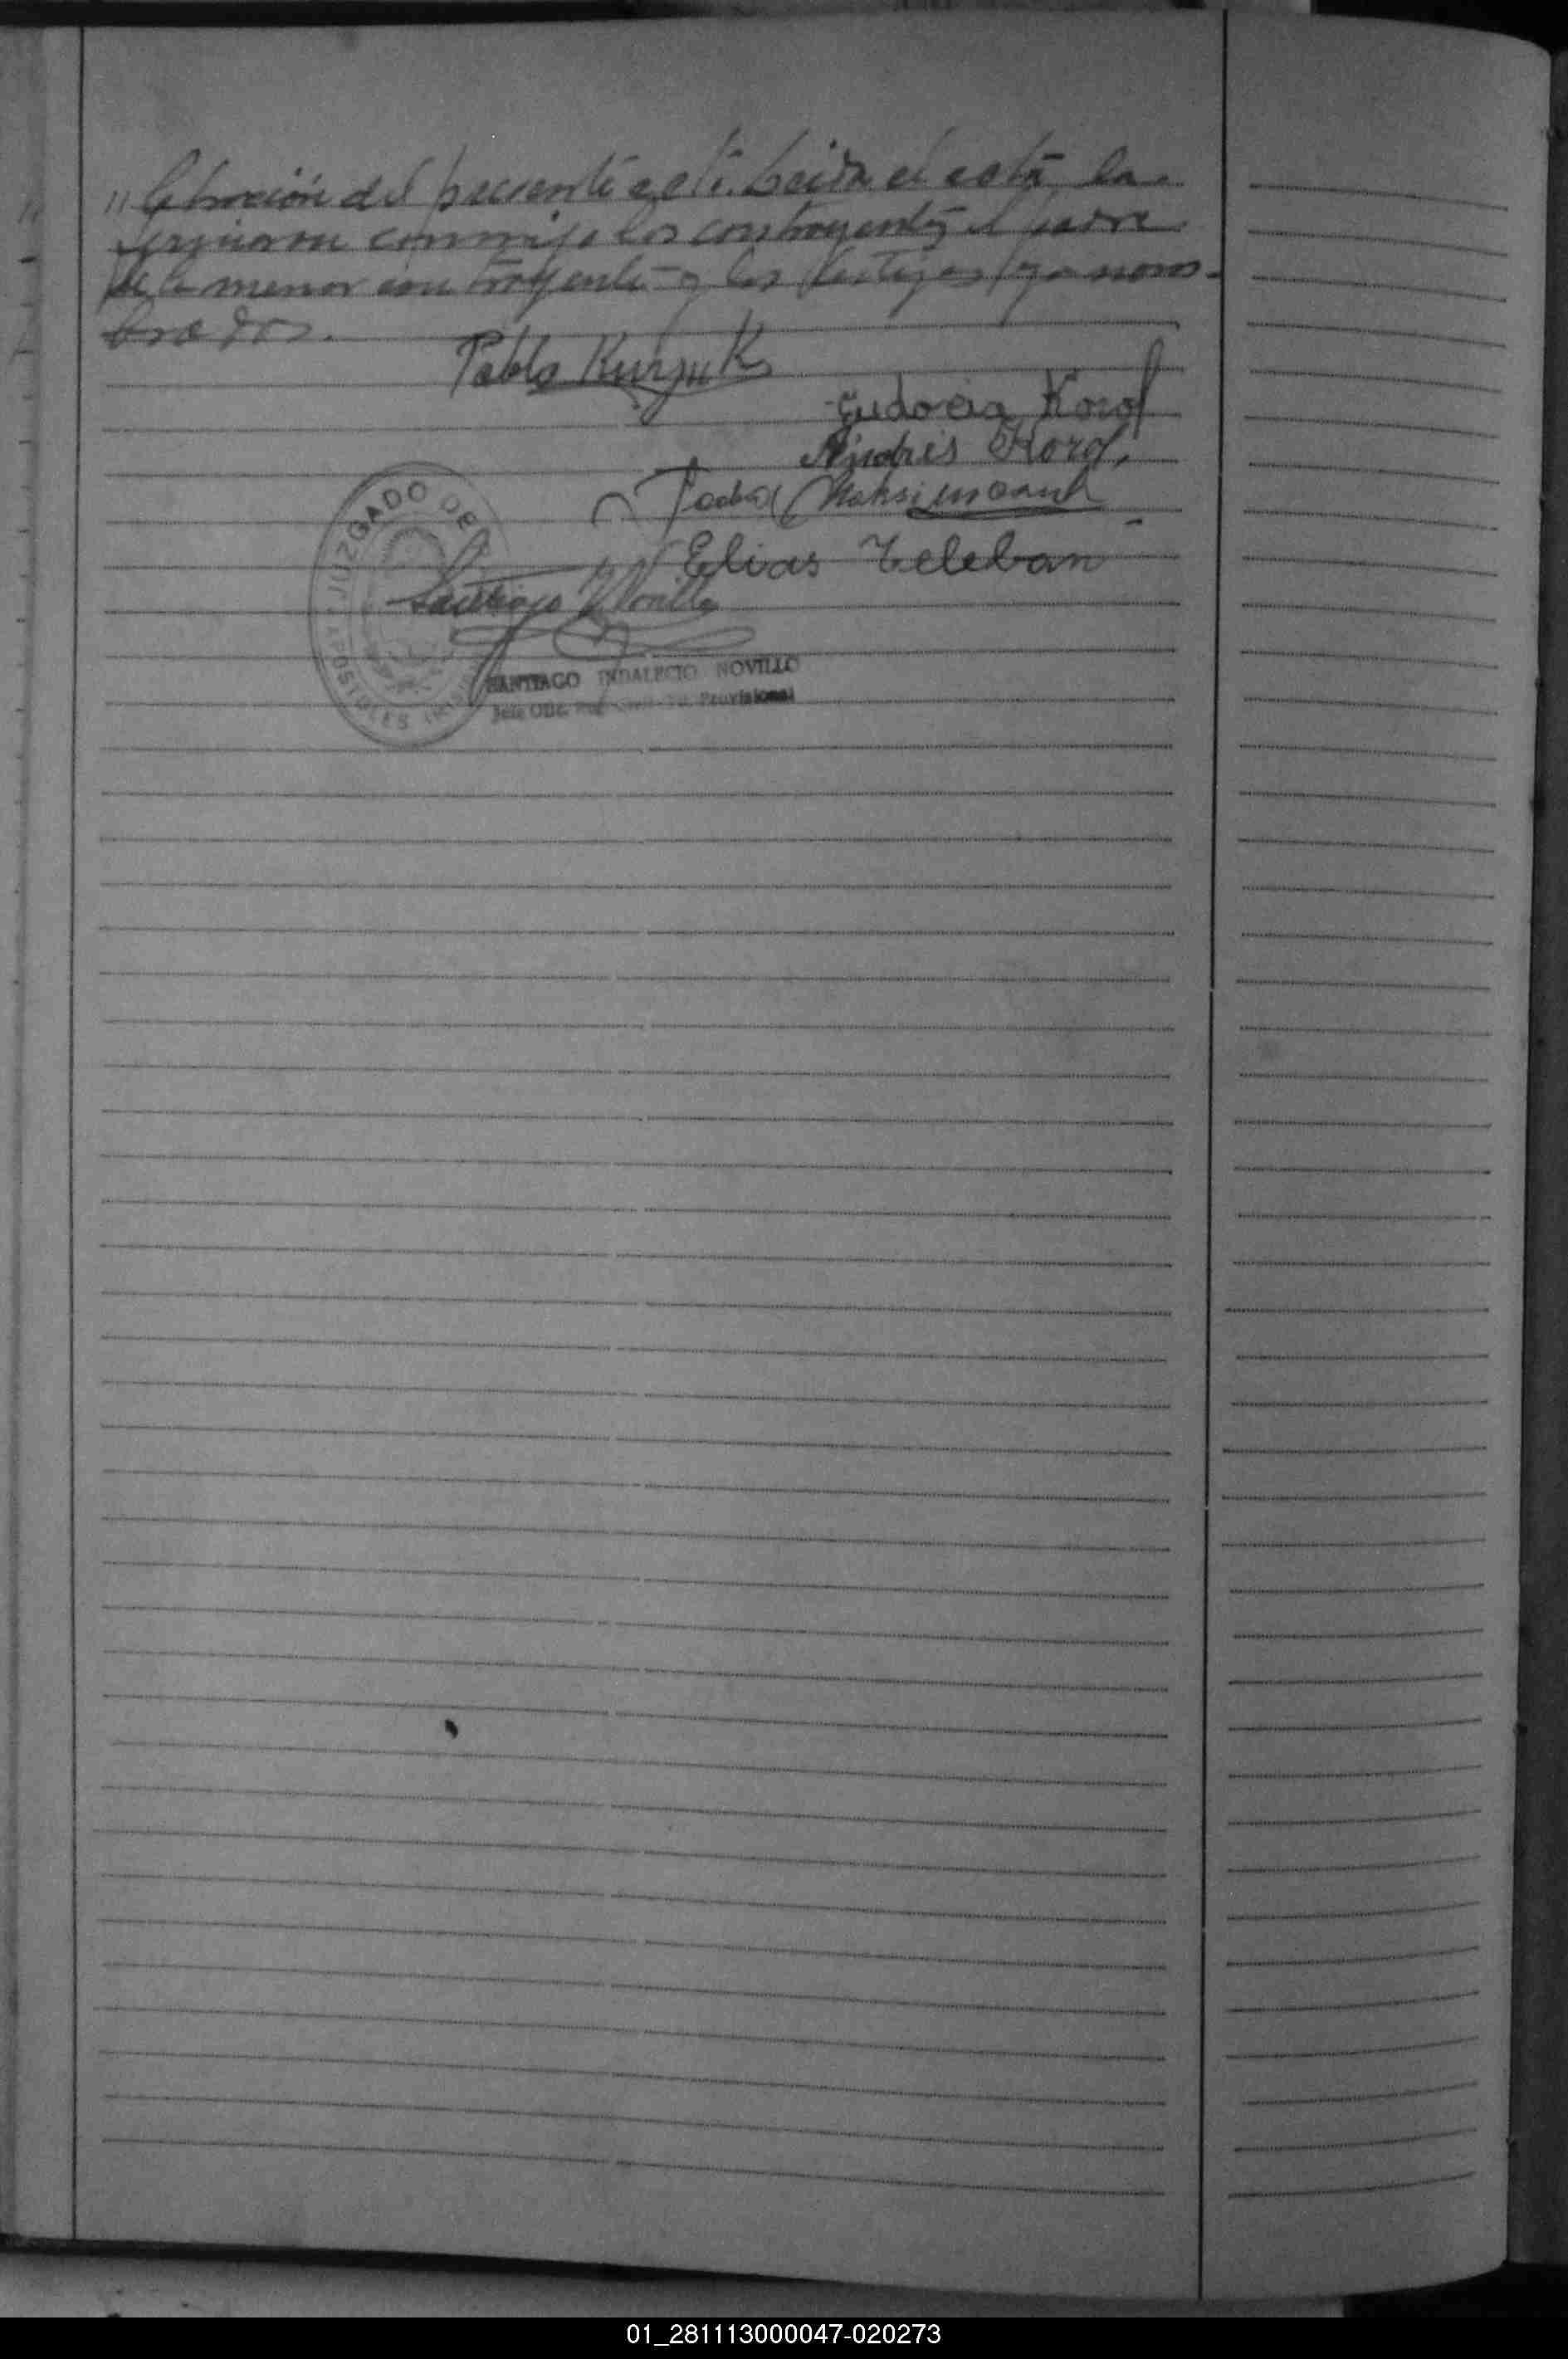 " lebración del presente acto. Leida el acta, la
firmaron conmigo los contrayentes, el padre
de la menor contrayente y los testigos ya nom-
brados.
Pablo Kuzjuk
Eudocia Korol
Andrés Korol,
Maksimaruk
Elias Teleban
Santiago I Novillo
JUZGADO DE
APOSTOLES
SANTIAGO INDALECIO NOVILLO
Jefe Ofic. Provisional
01_281113000047-020273